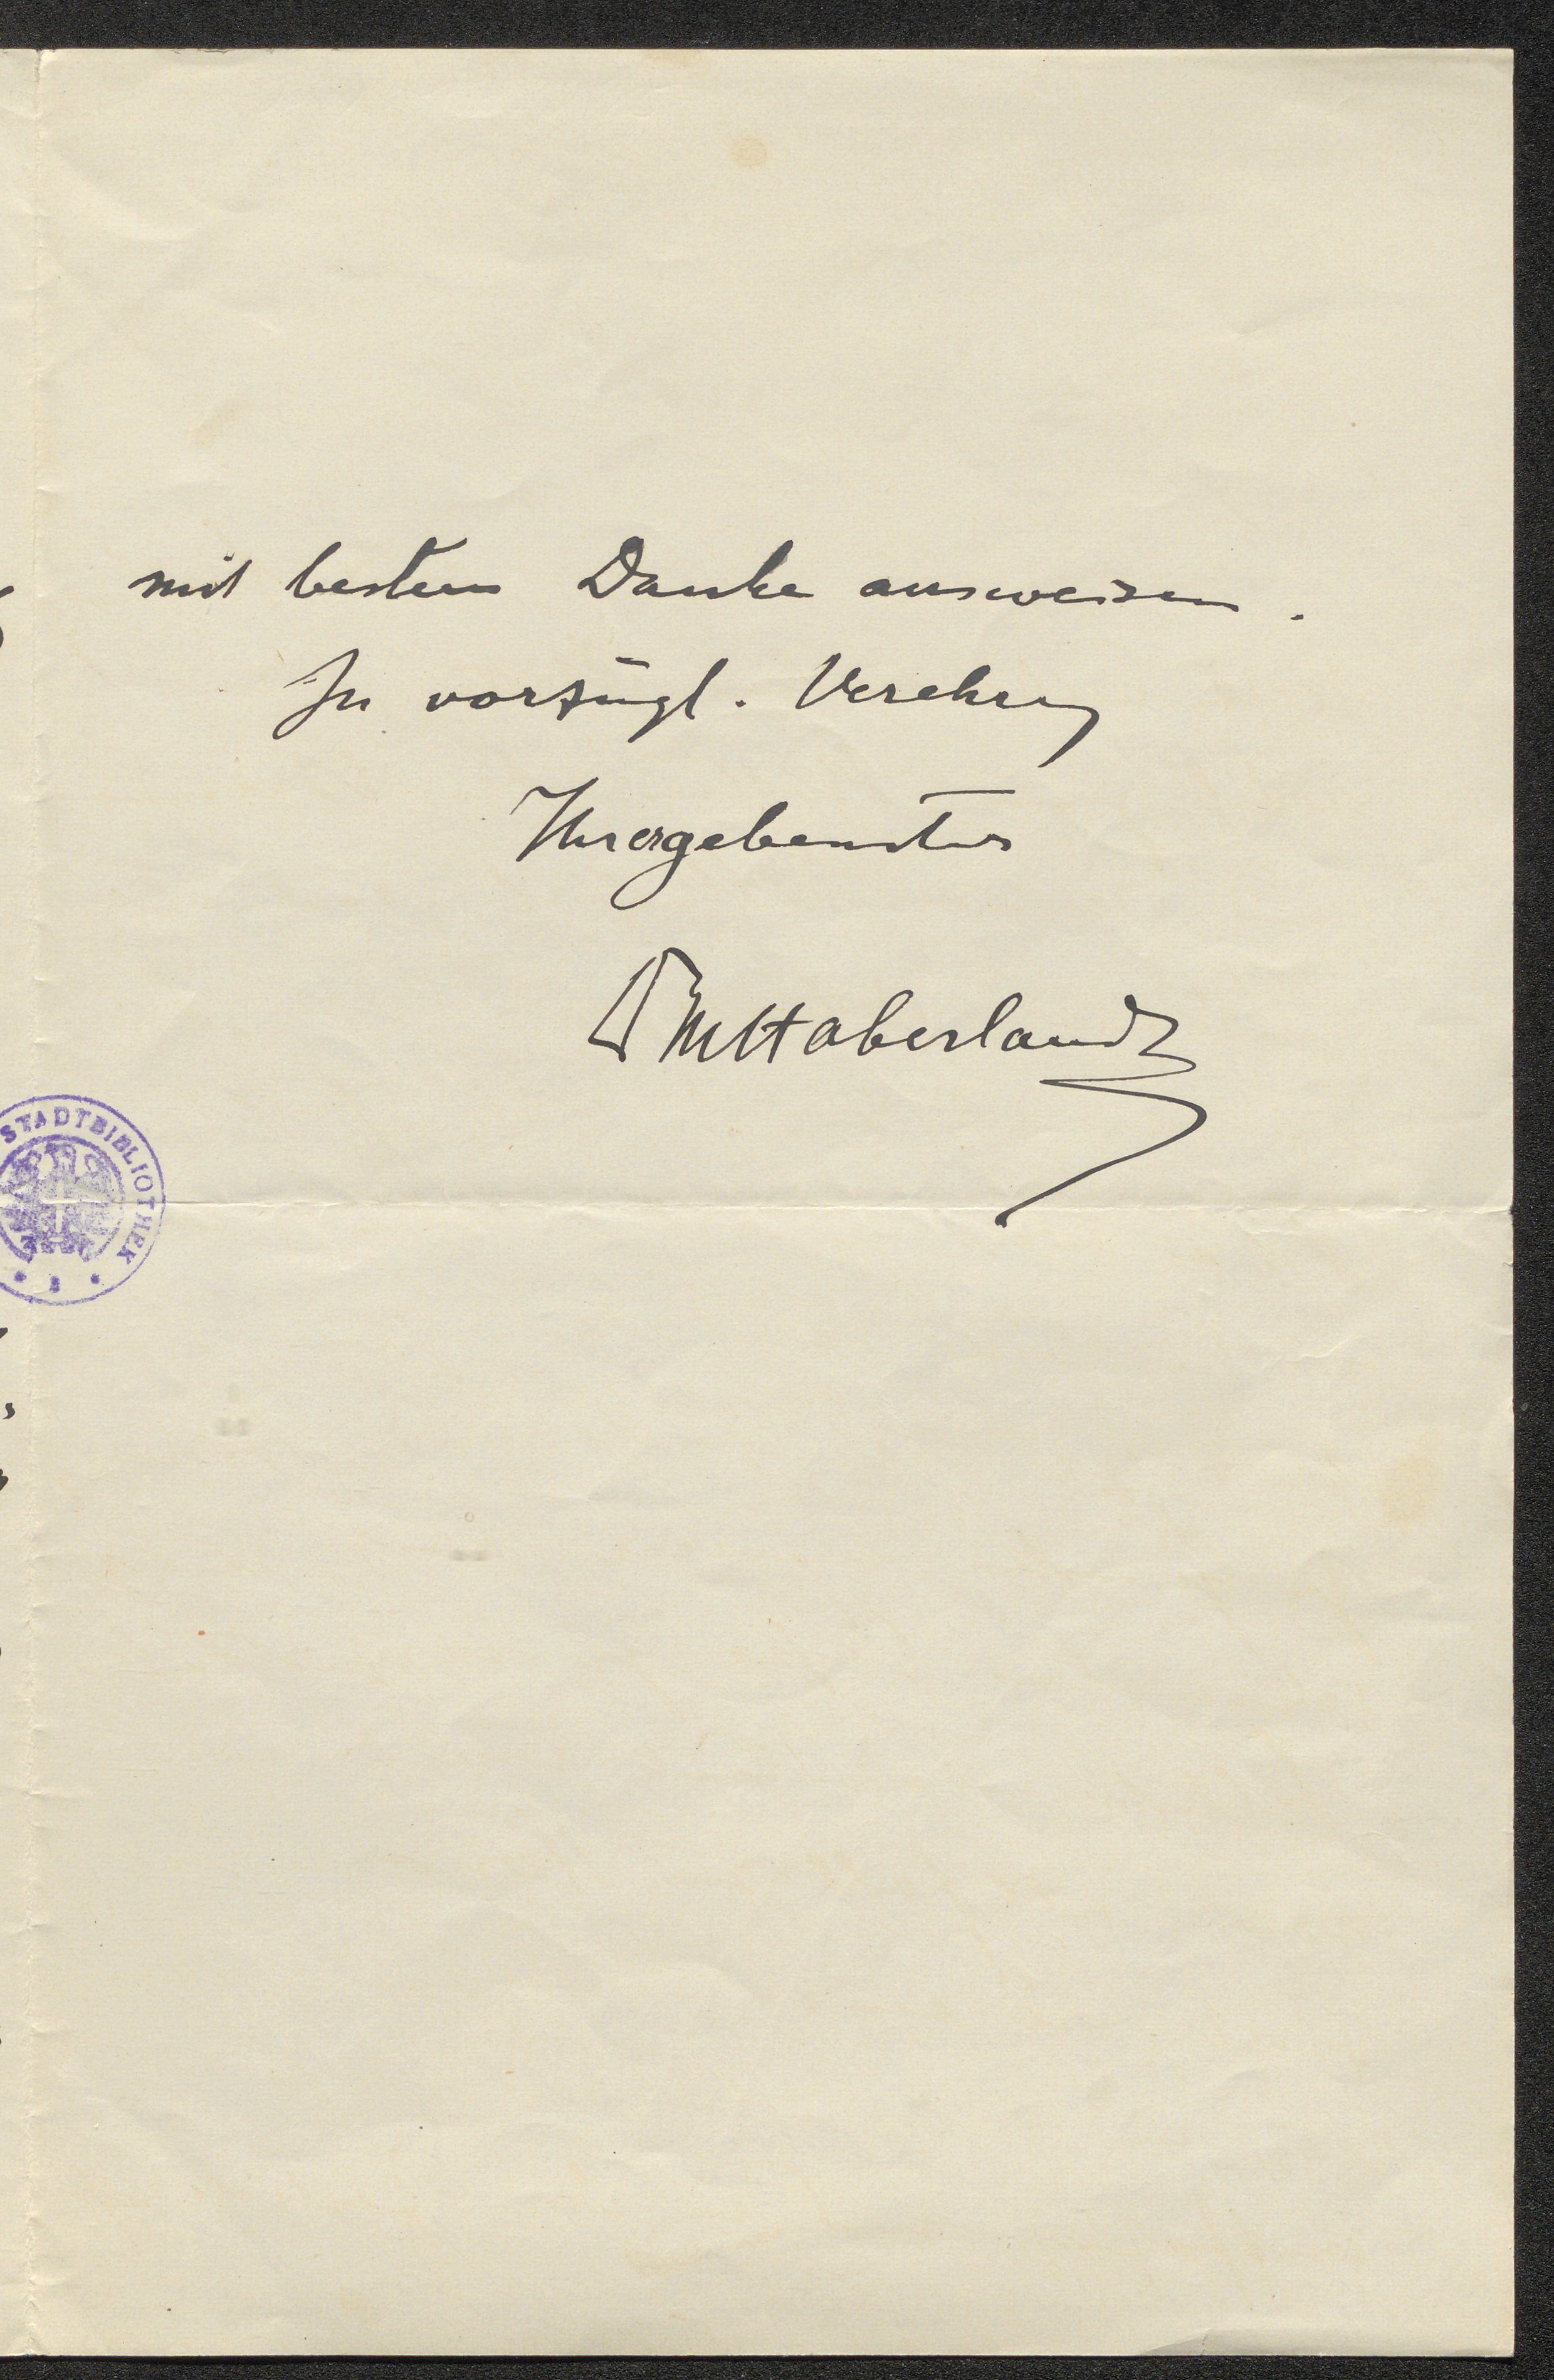 mit bestem Danke ausweisen.
In vorzügl. Verehrung
Ihr ergebenster
Dr M Haberlandt
STADTBIBLIOTHEK